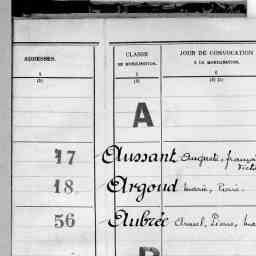 ADRESSES.
CLASSE
DE MOBILISATION.
JOUR DE CONVOCATION
À LA MOBILISATION.
A
17 Aussant Auguste, françois
Victor
18 Argoud Marie, Pierre.
56 Aubrée Armel, Pierre,
B